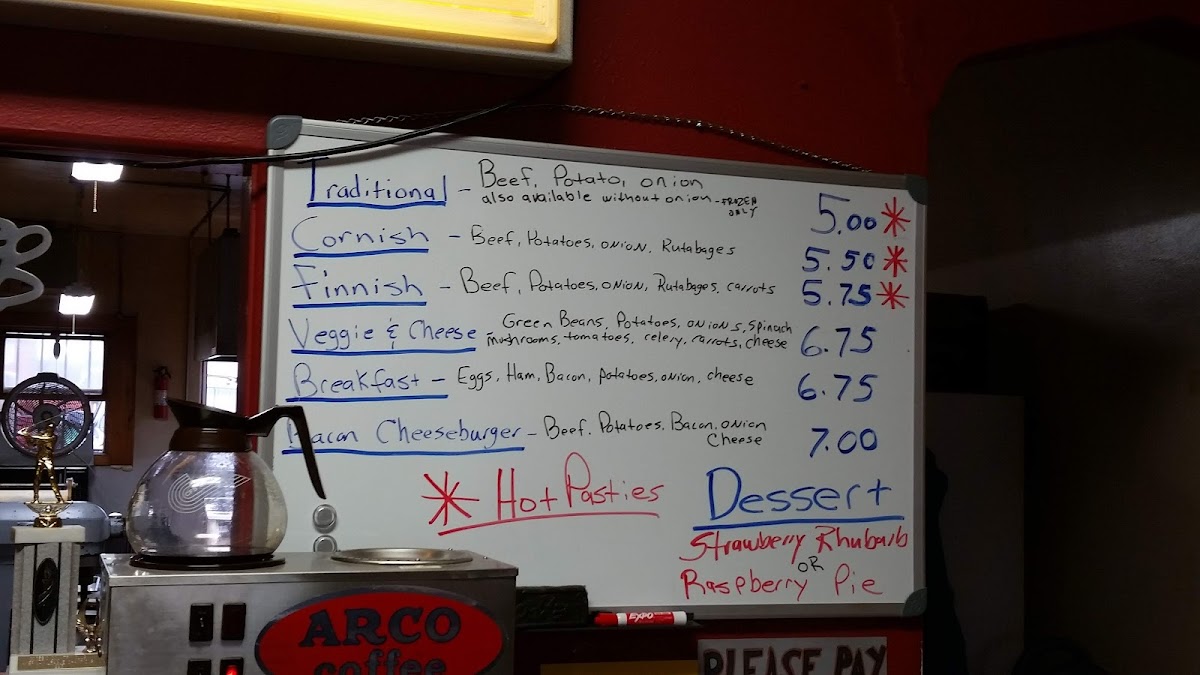 Traditional - Beef, Potato, onion
also available without onion - FROZEN ONLY
5.00 *
Cornish - Beef, Potatoes, onion, Rutabages 5.50 *
Finnish - Beef, Potatoes, onion, Rutabages, carrots 5.75 *
Veggie & Cheese - Green Beans, Potatoes, onions, spinach
mushrooms, tomatoes, celery, carrots, cheese 6.75
Breakfast - Eggs, Ham, Bacon, potatoes, onion, cheese 6.75
Bacon Cheeseburger - Beef, Potatoes, Bacon, onion
Cheese 7.00
* Hot Pasties
Dessert
Strawberry Rhubarb
OR
Raspberry Pie
EXPO
ARCO
coffee
PLEASE PAY